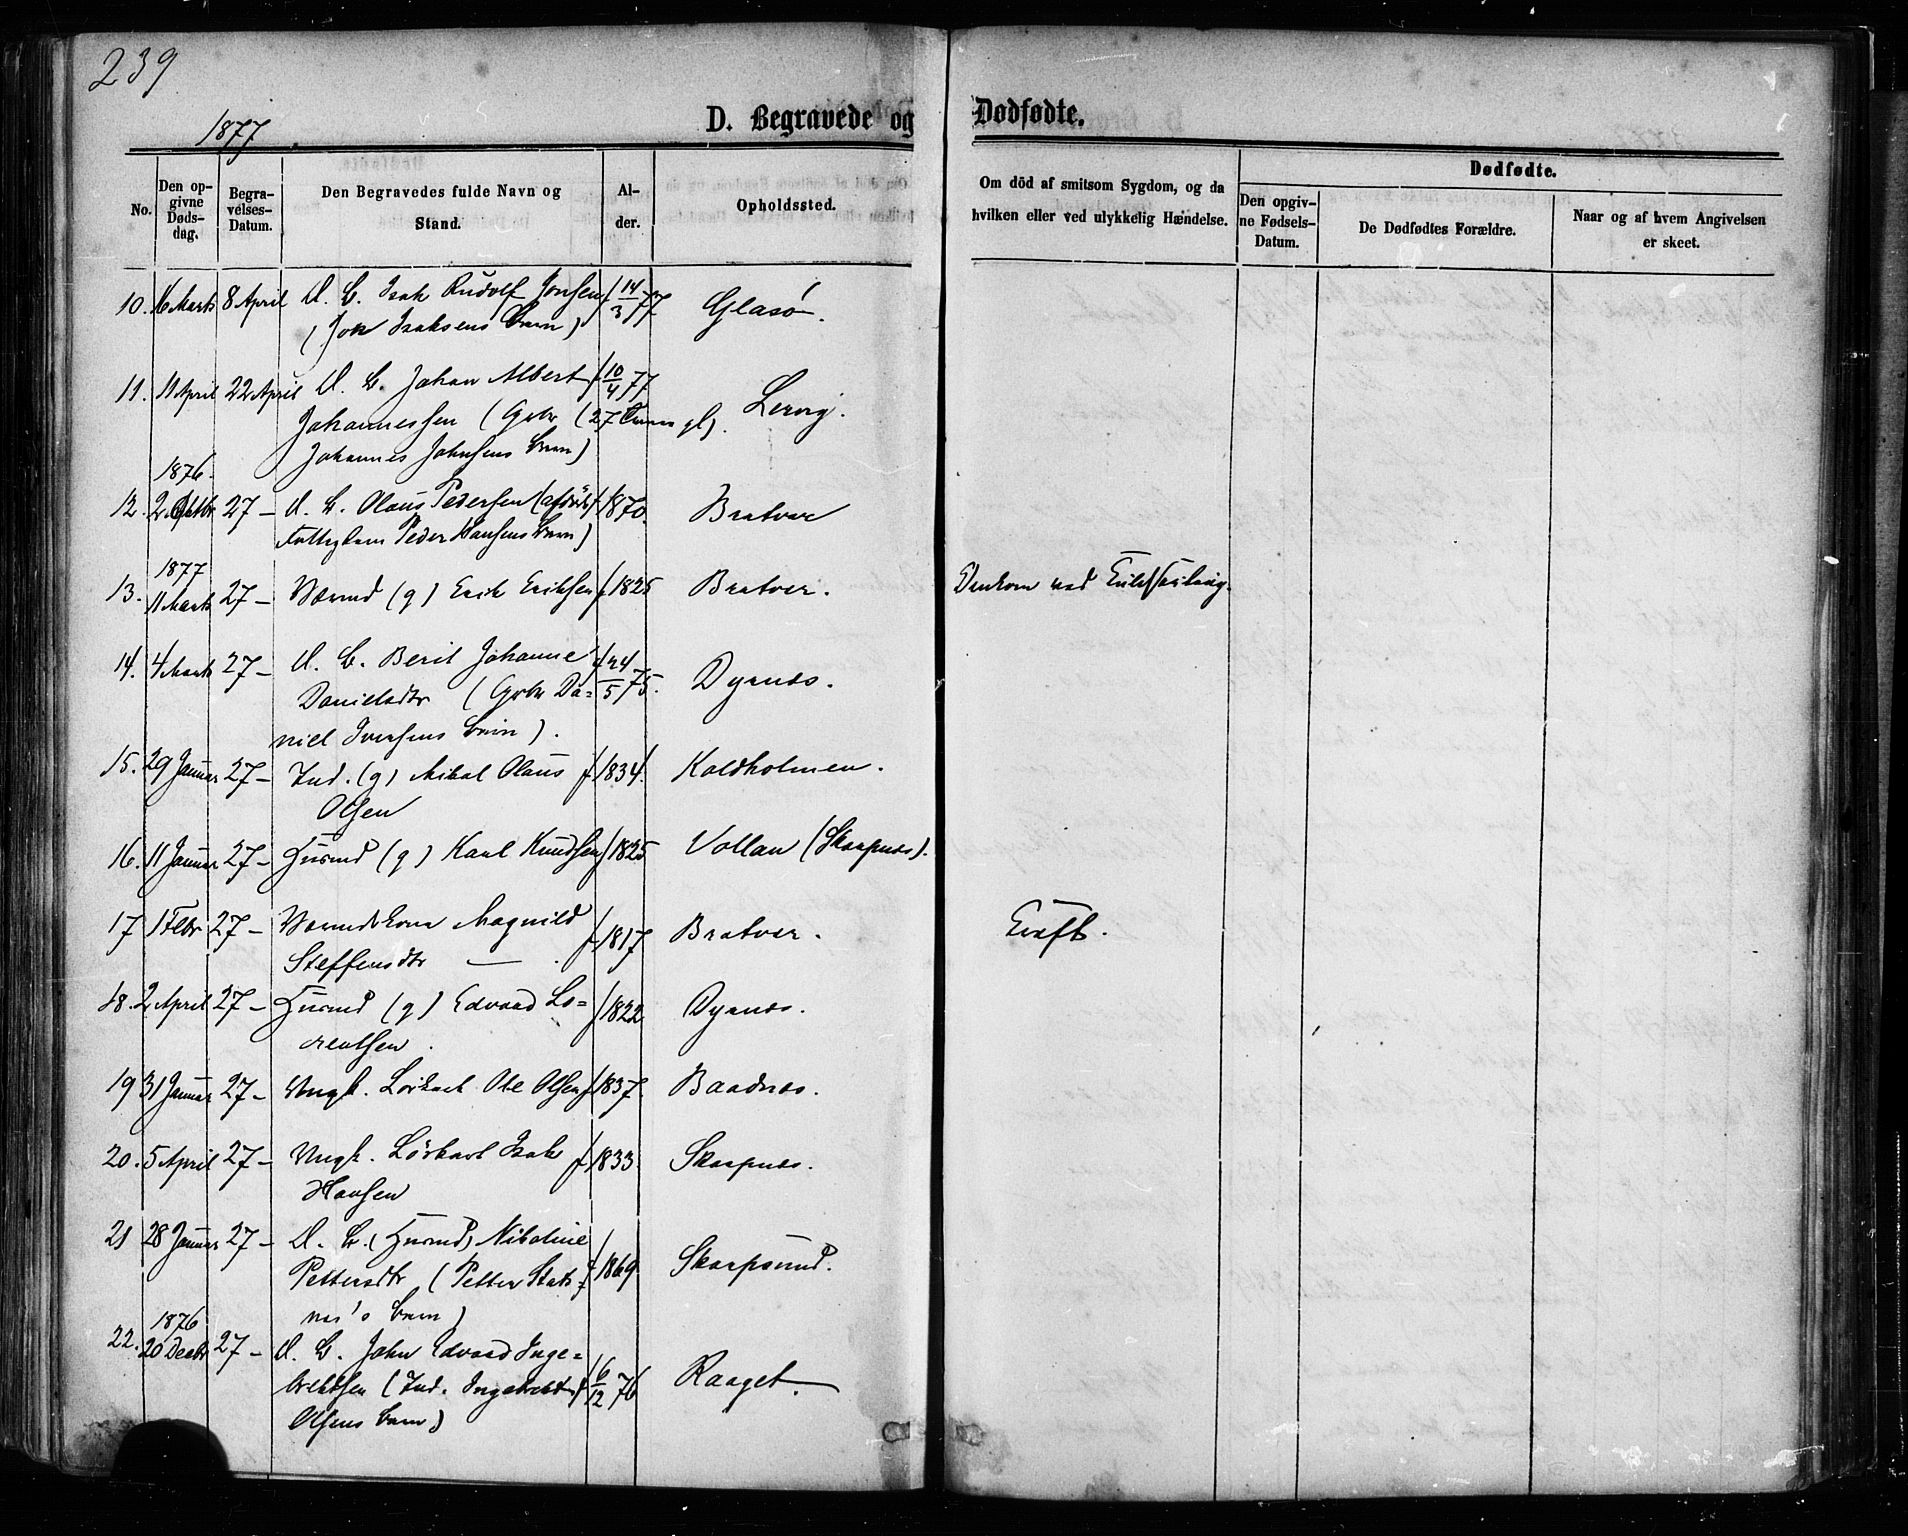 239
1877.
D. Begravede og Dødfødte.
No.
Den opgivne Dødsdag.
Begravelses-Datum.
Den Begravedes fulde Navn og Stand.
Alder.
Opholdssted.
Om död af smitsom Sygdom, og da hvilken eller ved ulykkelig Hændelse.
Dødfødte.
Den opgivne Fødsels-Datum.
De Dødfødtes Forældre.
Naar og af hvem Angivelsen er skeet.
10. 16 Marts 8 April D. B. Isak Rudolf Jonsen f 14/3 77 Glasø.
(Jon Isaksens Barn)
11. 11 April 22 April D. B. Johan Albert f 10/4 77 Lervig.
Johannessen (Gbr (27 Timer gl).
Johannes Johnsens Barn)
1876.
12. 2 Oktbr 27 – D. B. Olaus Pedersen (afdøde f 1870. Bratvær
Fattiglem Peder Hansens Barn)
1877
13. 11 Marts 27 – Nørmd (g) Erik Eriksen f 1825 Bratvær. Omkom ved Kuldseiling.
14. 4 Marts 27 – D. B. Berit Johanne f 24/5 75. Dyrnes.
Danielsdtr (Gbr Da=
niel Iversens Barn).
15. 29 Januar 27 – Ind. (g) Mikal Olaus f 1834. Koldholmen.
Olsen
16. 11 Januar 27 – Husmd (g) Karl Knudsen f 1825 Vollan (Skarpnes).
17 1 Febr 27 – Magnild f 1817 Bratvær. Kræft.
Steffensdtr — .
18. 2 April 27 – Husmd (g) Edvard Lo= f 1822 Dyrnes.
rentsen.
19 31 Januar 27 – Ungk. Løskarl Ole Olsen f 1837. Baadnes.
20. 5 April 27 – Ungk. Løskarl Isak f 1833. Skarpnes.
Hansen
21 28 Januar 27 – D. B. (Husmd) Nikoline f 1869. Skarpsund.
Pettersdtr (Petter Stak=
nes's Barn)
1876
22. 20 Decbr 27 – D. B. John Edvard Inge= f 6/12 76 Raaget.
brektsen (Ind. Ingebrekt
Olsens Barn)